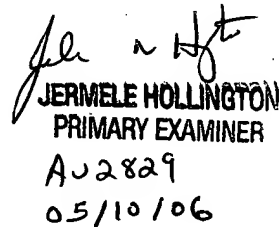 JERMELE HOLLINGTON
PRIMARY EXAMINER
AU2829
05/10/06